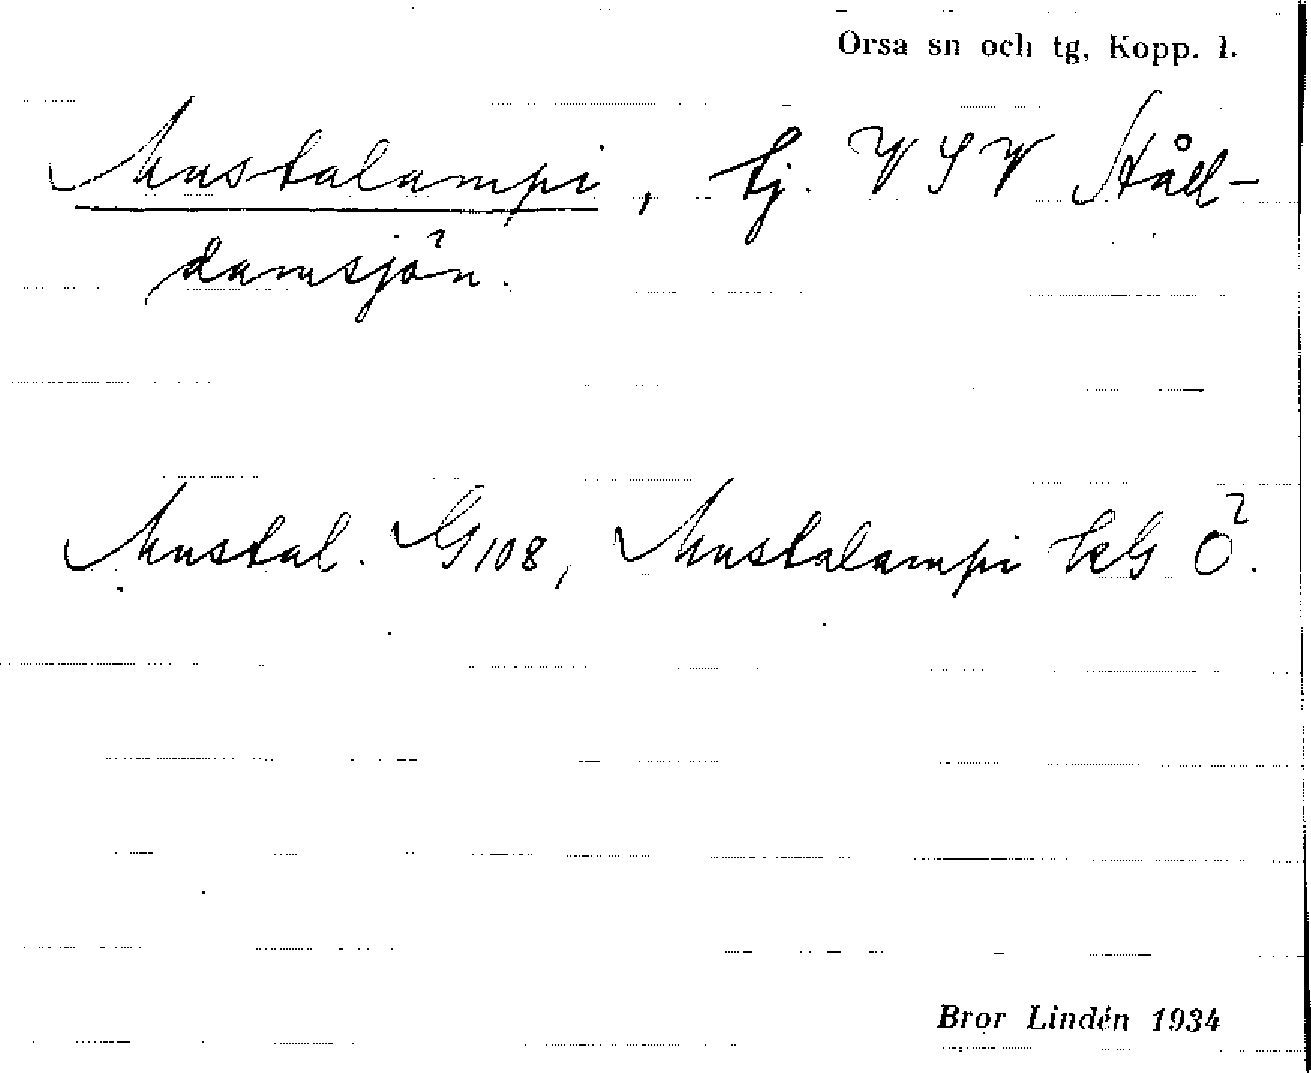 Orsa sn och tg, Kopp. l.
Mustalampi, tj. VSV Ståll-
damsjön.
Mustal. G108, Mustalampi LkG Ö.
Bror Lindén 1934